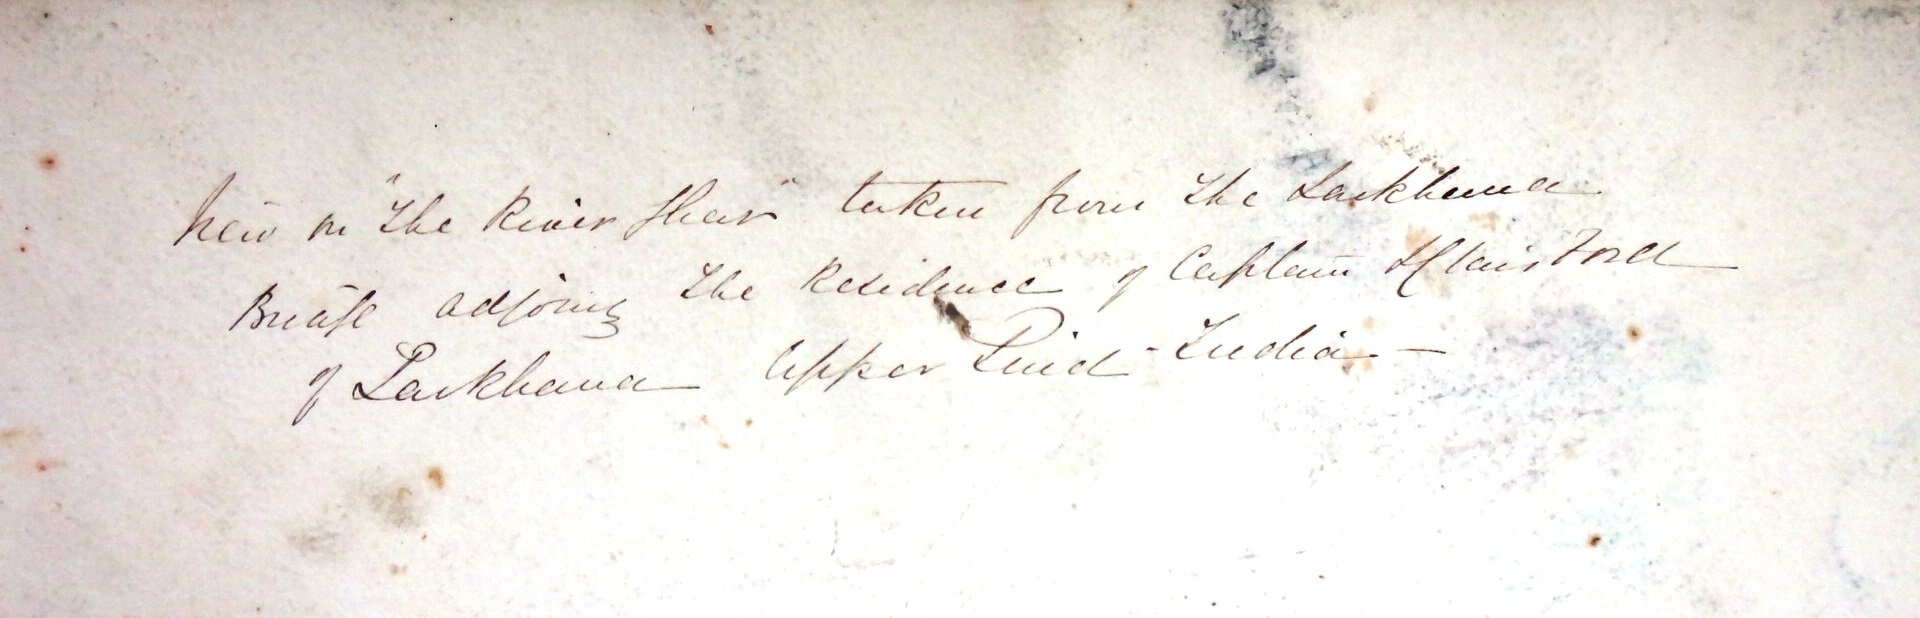 View on "The River Ghar" taken from The Larkhana
Bridge adjoing The Residence of Captain St Clair Ford
of Larkhana Upper Scind - India -